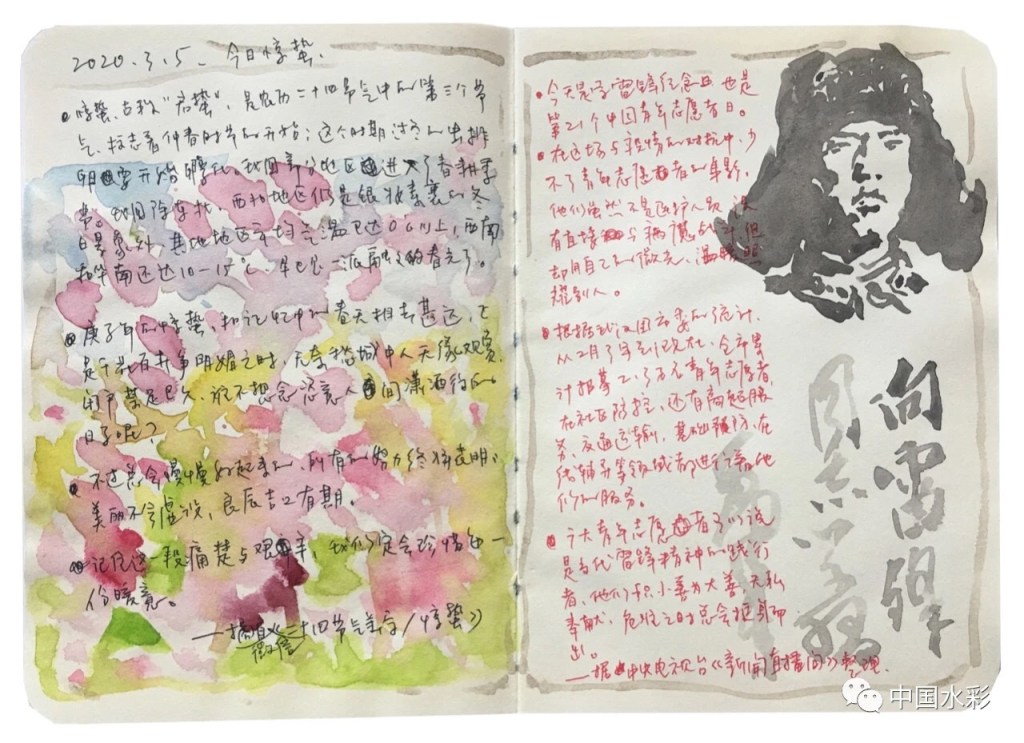 2020.3.5、今日惊蛰.
惊蛰,古称"启蛰",是农历二十四节气中的第三个节
气,标志着仲春时节的开始;这个时期过冬的虫排
卵要开始孵化。我国部分地区进入了春耕季
节。我国除东北、西北地区仍是银妆素裹的冬
日景象外,其他地区平均气温已达0℃以上,西南
和华南还达10-15℃,早已是一派融融的春光了。
庚子年的惊蛰,和记忆中的春天相去甚远,它
是千载百卉争明媚之时,无奈愁城中人无缘观赏,
闭户禁足已久,谁不想念恣意人间潇洒行的
日子呢?
不过总会慢慢好起来的,所有的努力终将花明,
美丽不会虚设,良辰吉日有期。
记住这一段痛楚与艰辛,我们定会珍惜每一
份暖意。
——摘自微信二十四节气美文/《惊蛰》
今天是学雷锋纪念日也是
第21个中国青年志愿者日。
在这场与疫情的对抗中,少
不了青年志愿者的身影,
他们虽然不是医护人员,没
有直接与病魔战斗,但
却用自己的微光,温暖照
耀别人。
根据武汉团市委的统计,
从2月23年到现在,全市累
计招募2.3万名青年志愿者,
在社区防控,还有商超服
务,交通运输,基础预防,在
线辅导等领域都进行着他
们的服务。
广大青年志愿者可以说
是当代雷锋精神的践行
者,他们积小善为大善,无私
奉献,危难之时总会挺身而
出。
——据中央电视台《新闻直播间》整理.
向雷锋
同志学习
中国水彩